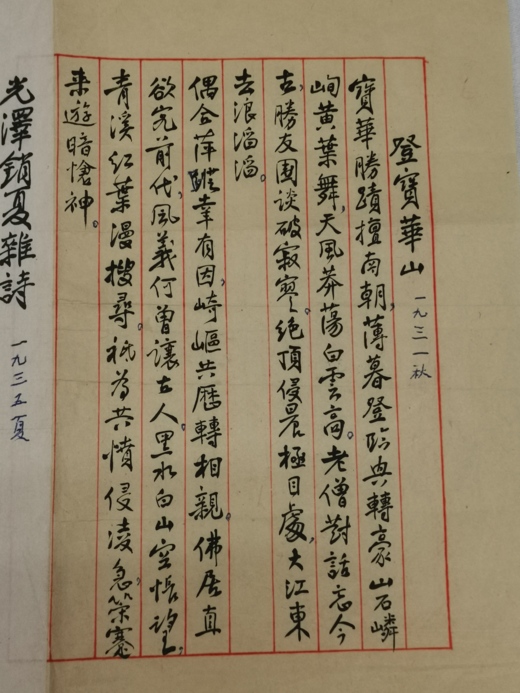 登寶華山 一九三一秋
寶華勝蹟擅南朝,薄暮登臨興轉豪山石嶙
峋黃葉舞,天風莽蕩白雲高。老僧對話忘今
古,勝友圍談破寂寥。絕頂侵晨極目處,大江東
去浪滔滔。
偶合萍蹤幸有因,崎嶇共歷轉相親。佛居直
欲究前代,風義何曾讓古人。黑水白山空悵望,
青溪紅葉漫搜尋。祇為共憤侵淩急,策蹇
来遊暗愴神。
光澤銷夏雜詩 一九三五夏